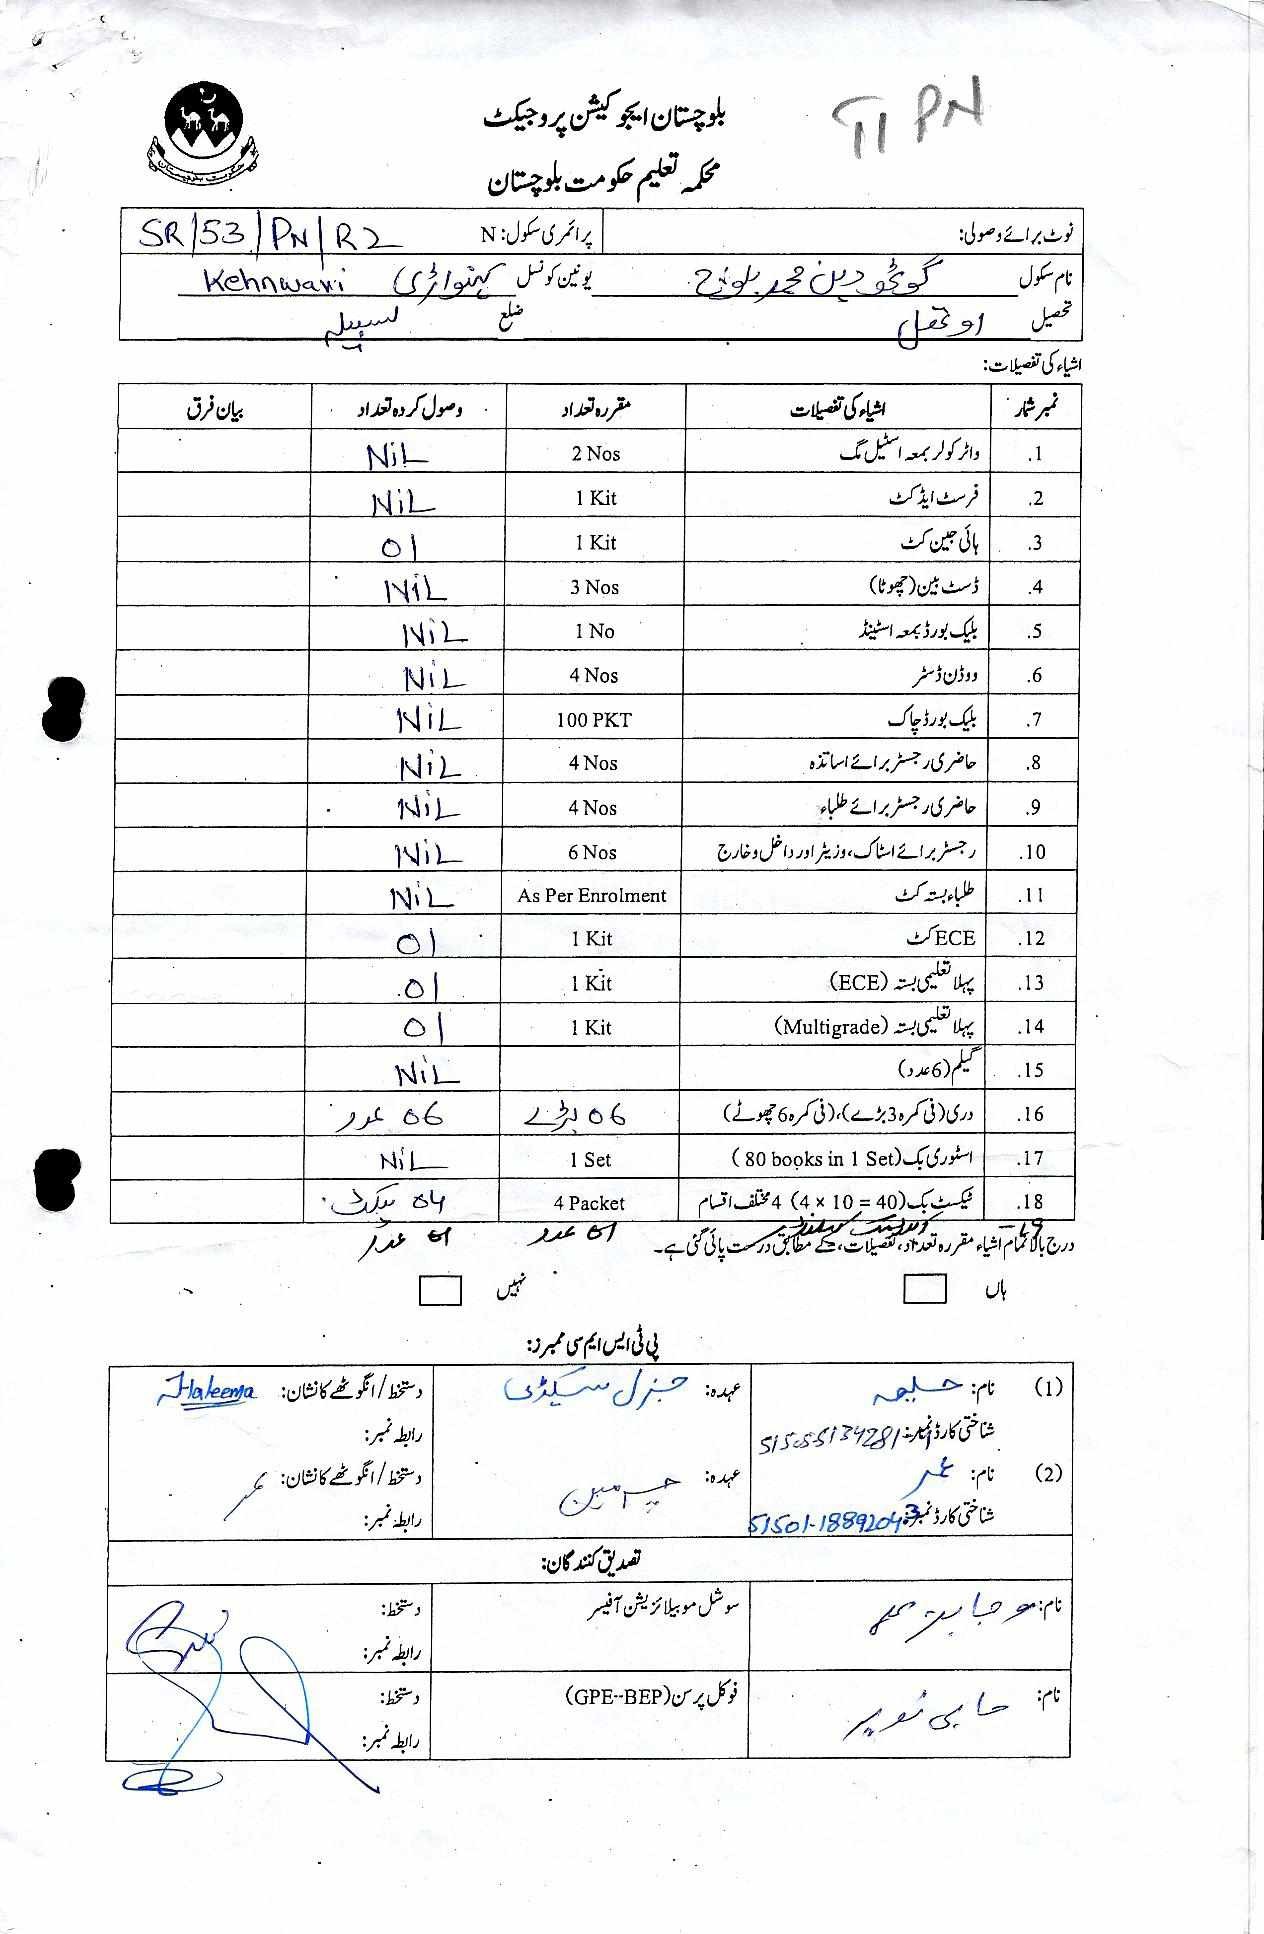 TI PN
بلوچستان ایجوکیشن پروجیکٹ
محکمہ تعلیم حکومت بلوچستان
نوٹ برائے وصولی: پرائمری سکول: N SR/53/PN/R2
نام سکول گوٹھ دین محمد بلوچ یونین کونسل کہنواڑی Kehnwari
تحصیل اوتھل ضلع لسبیلہ
اشیاء کی تفصیلات:
نمبر شمار اشیاء کی تفصیلات مقررہ تعداد وصول کردہ تعداد بیان فرق
.1 واٹر کولر بمعہ اسٹیل مگ 2 Nos NiL
.2 فرسٹ ایڈ کٹ 1 Kit NiL
.3 ہائی جین کٹ 1 Kit 01
.4 ڈسٹ بین (چھوٹا) 3 Nos NiL
.5 بلیک بورڈ بمعہ اسٹینڈ 1 No NiL
.6 ووڈن ڈسٹر 4 Nos NiL
.7 بلیک بورڈ چاک 100 PKT NiL
.8 حاضری رجسٹر برائے اساتذہ 4 Nos NiL
.9 حاضری رجسٹر برائے طلباء 4 Nos NiL
.10 رجسٹر برائے اسٹاک، وزیٹر اور داخل و خارج 6 Nos NiL
.11 طلباء بستہ کٹ As Per Enrolment NiL
.12 ECE کٹ 1 Kit 01
.13 پہلا تعلیمی بستہ (ECE) 1 Kit 01
.14 پہلا تعلیمی بستہ (Multigrade) 1 Kit 01
.15 گیلم (6 عدد) NiL
.16 دری (فی کمرہ 3 بڑے)، (فی کمرہ 6 چھوٹے) 06 بڑے 06 عدد
.17 اسٹوری بک (80 books in 1 Set) 1 Set NiL
.18 ٹیکسٹ بک (4 × 10 = 40) 4 مختلف اقسام 4 Packet 04 پیکٹ
19 01 عدد 01 عدد
درج بالا تمام اشیاء مقررہ تعداد، تفصیلات، کے مطابق درست پائی گئی ہے۔
ہاں نہیں
پی ٹی ایس ایم سی ممبرز:
(1) نام: حلیمہ عہدہ: جنرل سیکٹری دستخط / انگوٹھے کا نشان: Haleema
شناختی کارڈ نمبر: رابطہ نمبر:
(2) نام: عمر عہدہ: چیرمین دستخط / انگوٹھے کا نشان: عمر
شناختی کارڈ نمبر: 51501-18892043 رابطہ نمبر:
تصدیق کنندگان:
نام: سوشل موبیلائزیشن آفیسر دستخط:
رابطہ نمبر:
نام: فوکل پرسن (GPE--BEP) دستخط:
رابطہ نمبر: